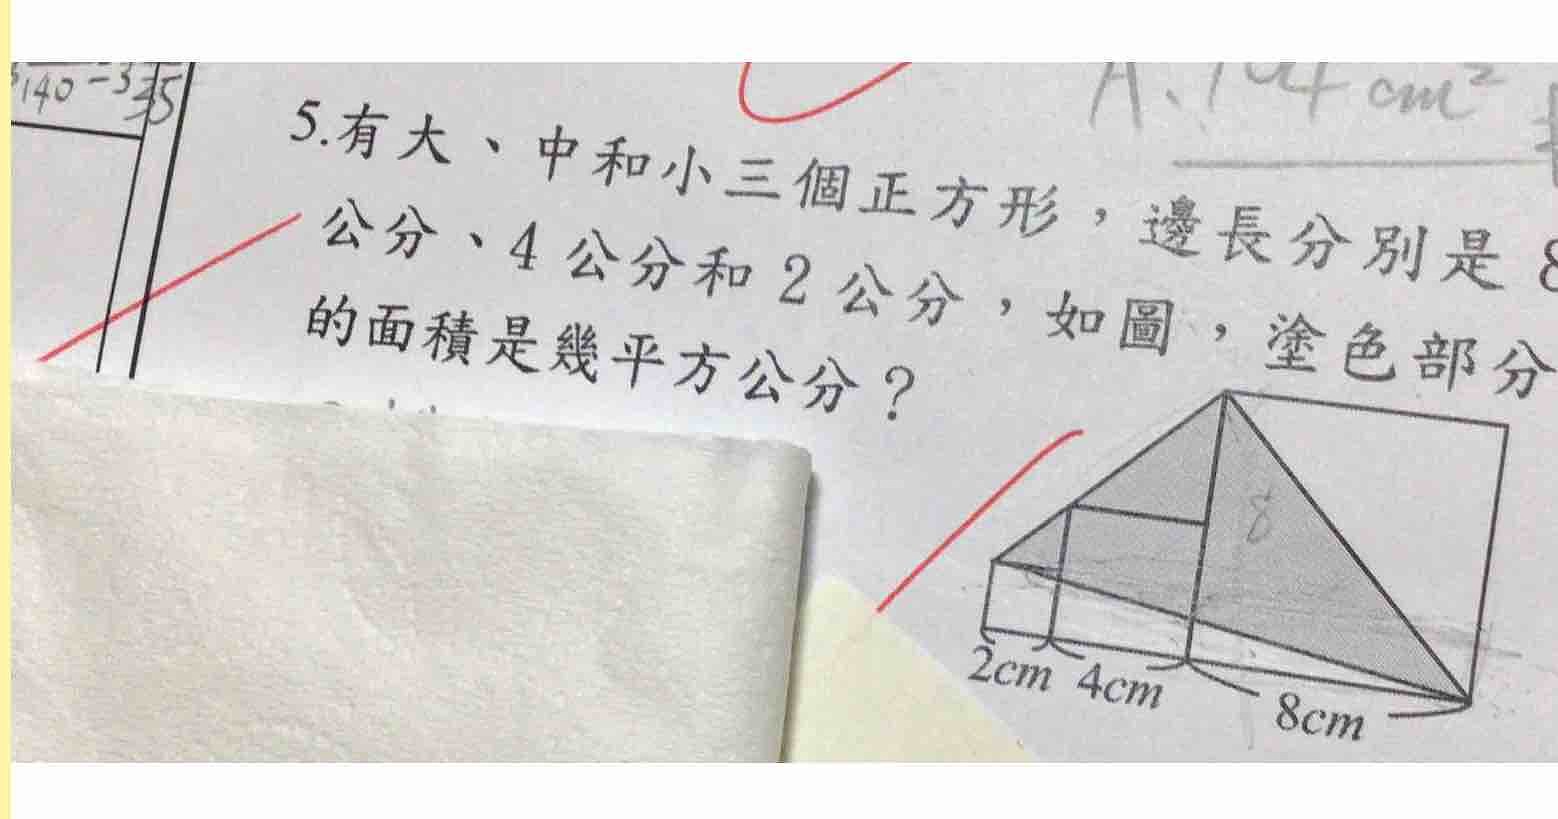 140 - 3 35
A. 104 cm²
5.有大、中和小三個正方形，邊長分別是 8
公分、4 公分和 2 公分，如圖，塗色部分
的面積是幾平方公分？
8
2cm 4cm 8cm